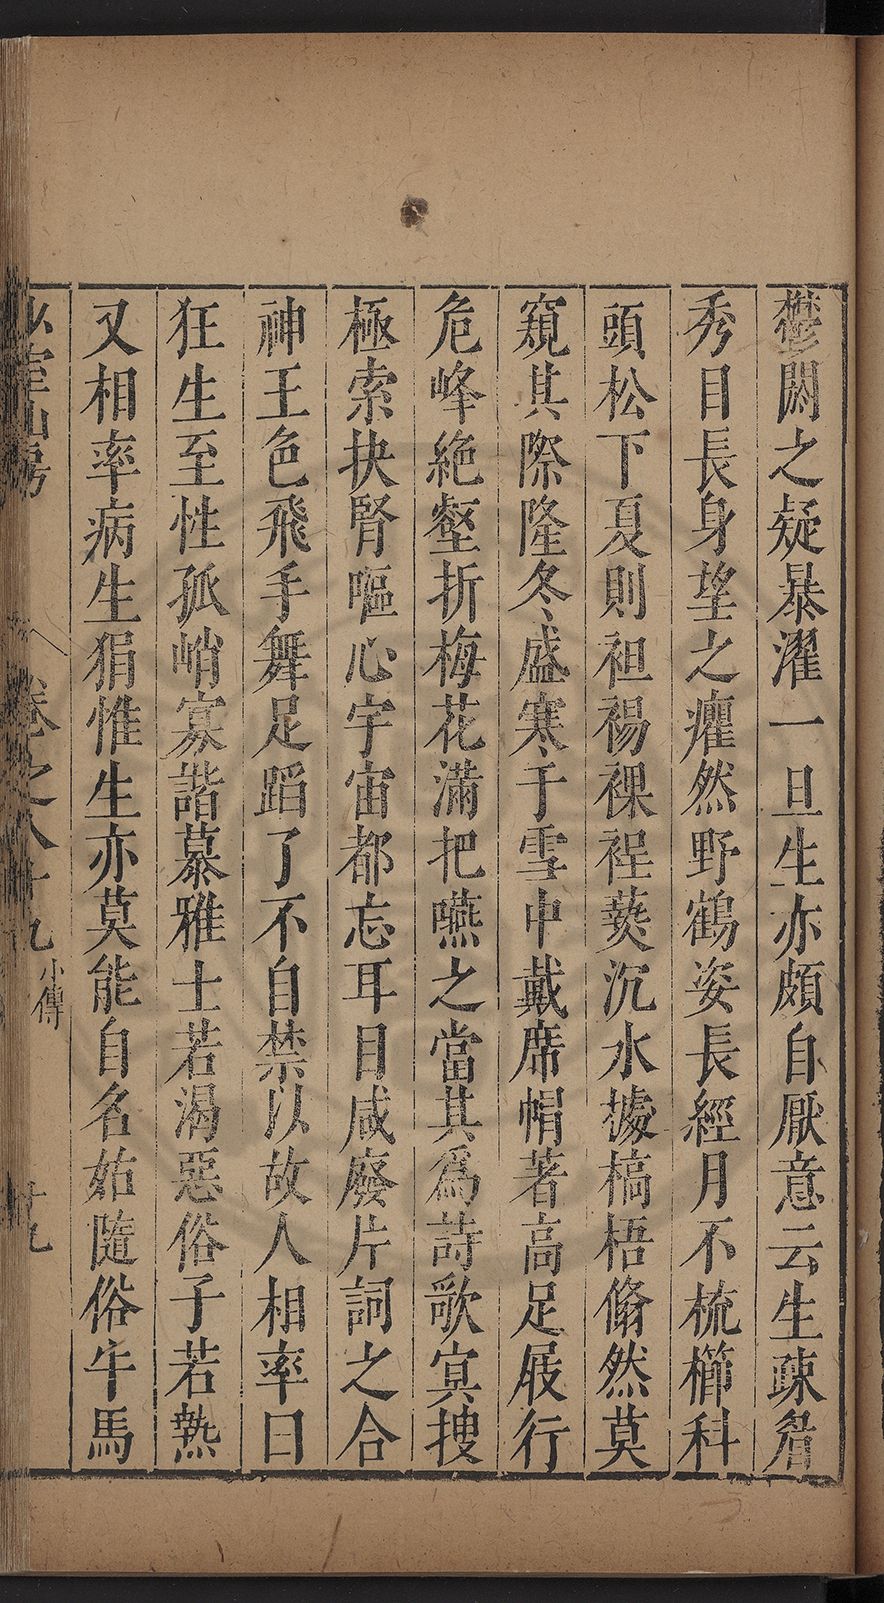 鬱閼之疑暴濯一旦生亦頗自厭意云生疎眉
秀目長身望之癯然野鶴姿長經月不梳櫛科
頭松下夏則袒裼裸裎爇沉水據槁梧翛然莫
窺其際隆冬盛寒于雪中戴席帽著高足屐行
危峰絶壑折梅花滿把嚥之當其爲詩歌㝠搜
極索抉腎嘔心宇宙都忘耳目咸廢片詞之合
神王色飛手舞足蹈了不自禁以故人相率曰
狂生至性孤峭寡諧慕雅士若渴惡俗子若熱
又相率病生狷惟生亦莫能自名始隨俗牛馬
少室山房 卷之八十九 小傳 十九